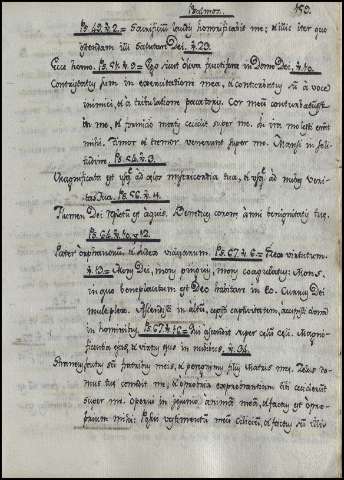 Psalmos. 159.
Ps. 49. ℣. 2. = Sacrificium laudis honorificabit me; et illic iter quo
ostendam illi salutare Dei. ℣. 23.
Ecce homo. Ps. 51. ℣. 9. = Ego sicut oliva fructifera in Domo Dei. ℣. 10.
Contristatus sum in exercitatione mea, et conturbatus sũ à voce
inimici, et a tribulatione peccatoris. Cor meum conturbatum est
in me, et formido mortis cecidit super me. Si
mihi. Timor et tremor venerunt super me. Mansi in soli-
tudine. Ps. 54. ℣. 3.
Magnificata est usq̃ ad celos misericordia tua, et usq̃ ad nubes veri-
tas tua. Ps. 56. ℣. 4.
Flumen Dei repletũ est aquis. Benedices coronæ anni benignitatis tuę.
Ps. 64. ℣. 10. 12.
Pater orphanorum, et Iudex viduarum. Ps. 67. ℣. 6. = Rex virtutum.
℣. 13. = Mons Dei, mons pinguis, mons coagulatus: Mons
in quo beneplacitum est Deo habitare in eo. Currus Dei
multiplex. Ascendisti in altũ, cepisti captivitatem, accepisti dona
in hominibus. Ps. 67. ℣. 16. = Qui ascendit super celũ celi. Magni-
ficentia ejus, et virtus ejus in nubibus. ℣. 34.
Extraneus factus sũ fratribus meis, et peregrinus filijs Matris meę. Zelus Do-
mus tuę comedit me, et opprobria exprobrantium tibi ceciderunt
super me. Operui in jejunio animã meã, et factus est oppro-
brium mihi: Posui vestimentũ meũ cilicium, et factus sũ illis